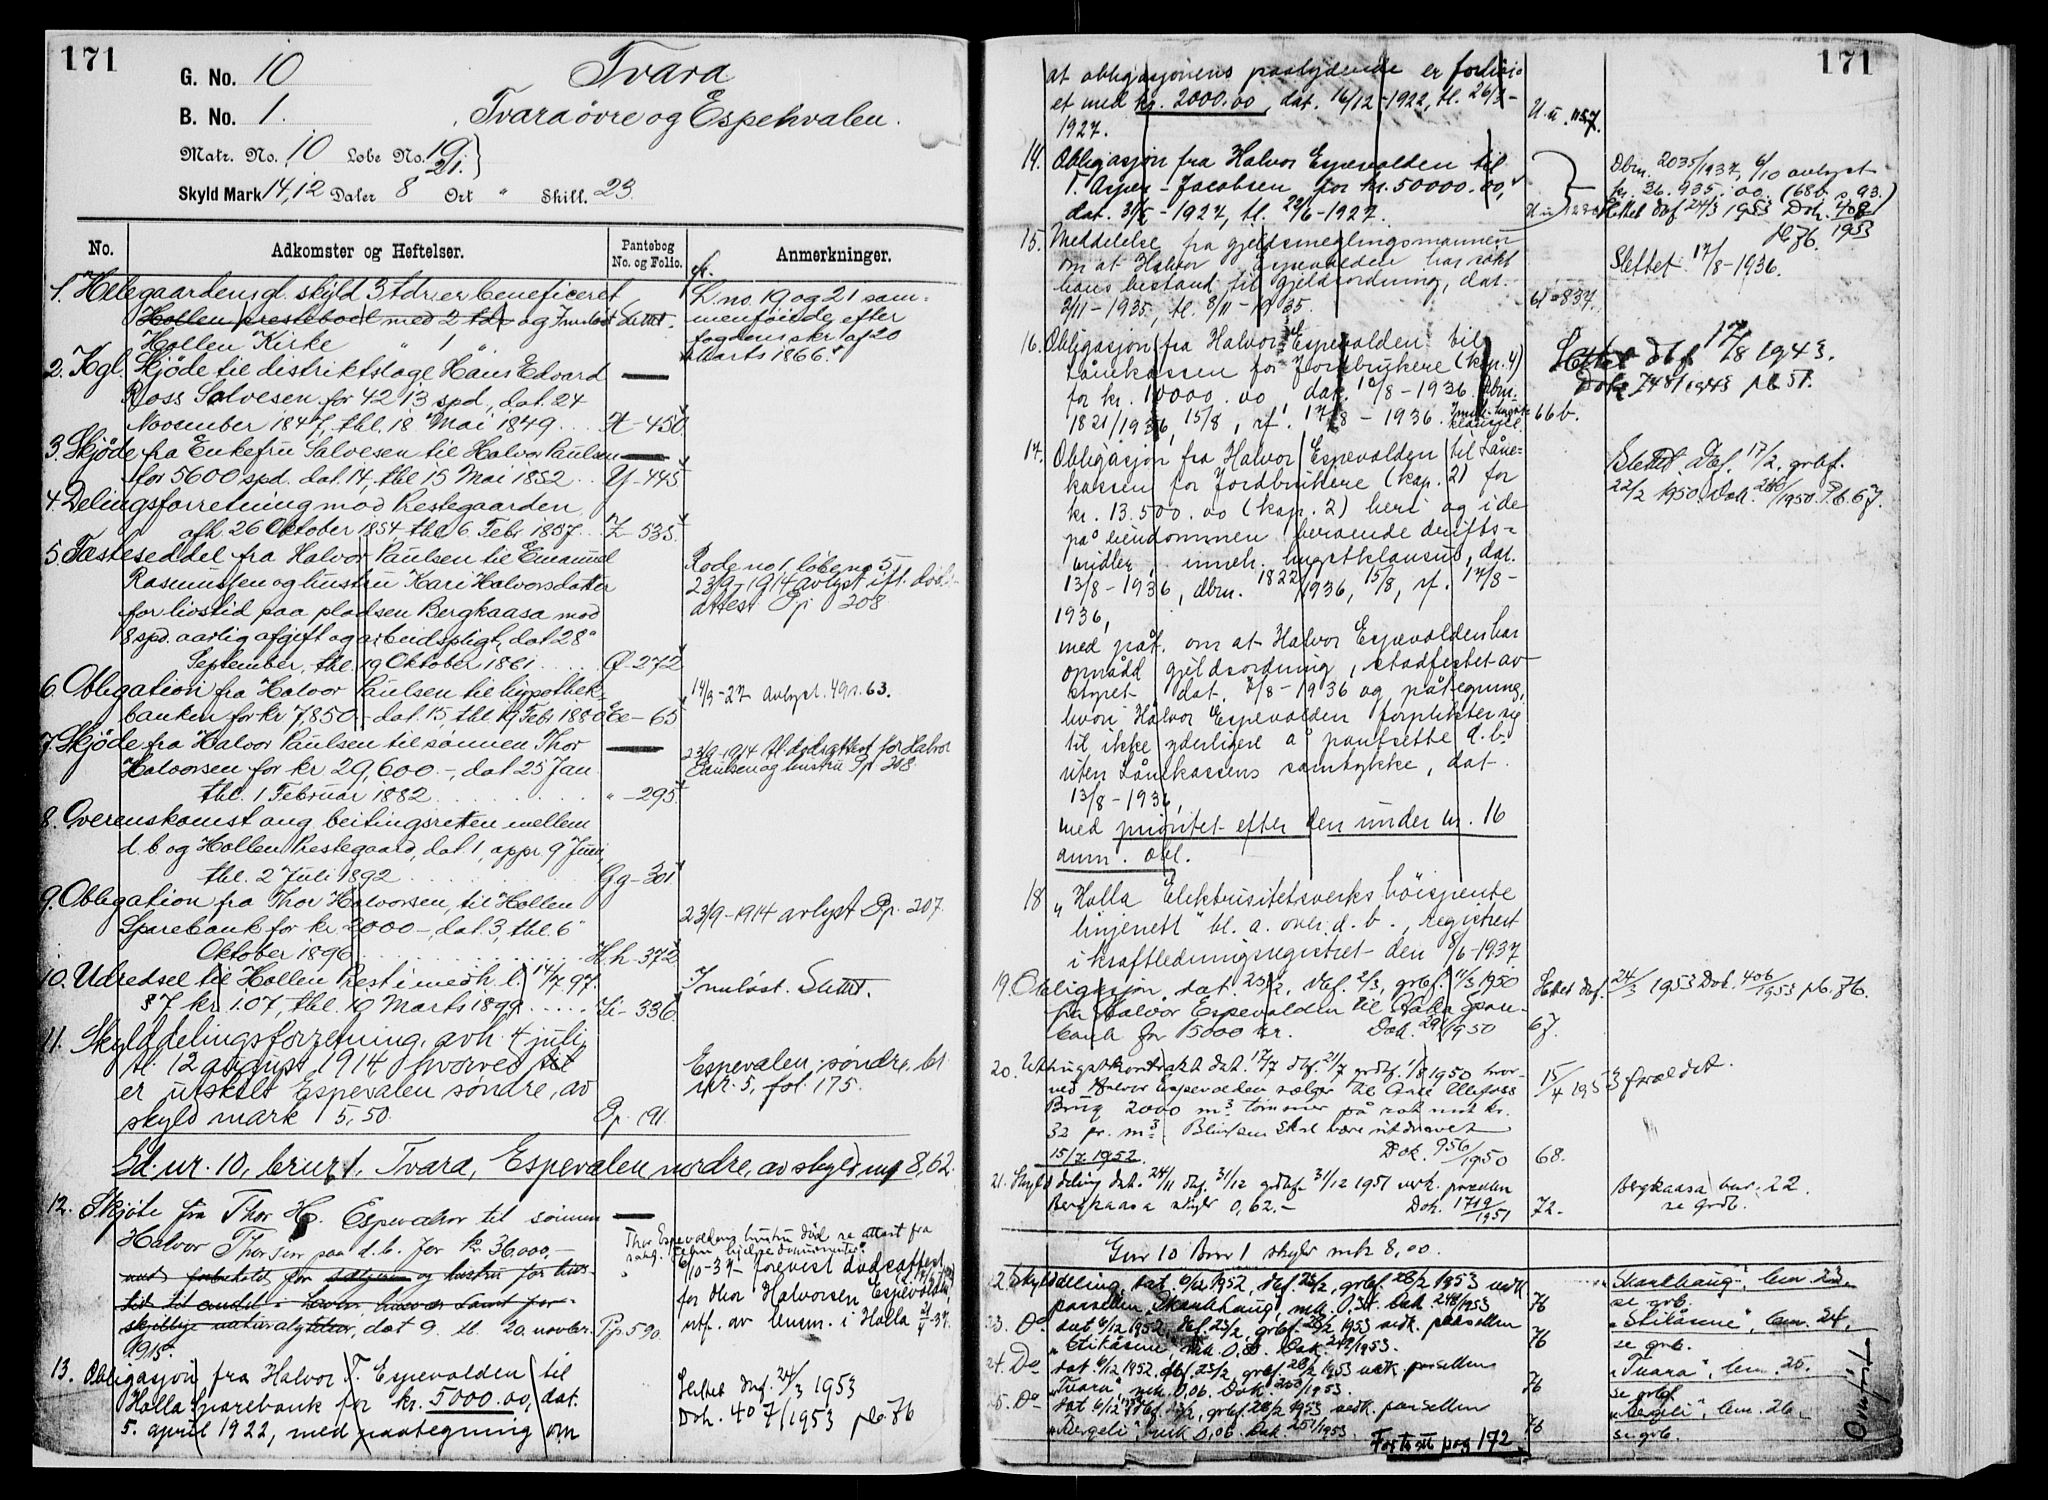 171
G. No. 10
Tvara
B. No. 1.
Tvara øvre og Espehvalen.
Matr. No. 10 Lobe No. 19 21.
Skyld Mark 14,12 Daler 8 Ort " Skill. 23.
No. Adkomster og Heftelser. Pantebog No. og Folio. Anmerkninger.
1. Helegaardens gl. skyld 3 tdr. er beneficeret
Hollen presteboel med 2 tdr og
Hollen Kirke " 1 "
L. no. 19 og 21 sam-
menføiede efter
fogdens skr. af 20
Marts 1866.
2. Kgl. Skjöde til distriktslæge Hans Edvard
Ross Salvesen for 4213 spd., dat. 24
November 1847, thl. 18 Mai 1849. X-450
3. Skjöde fra Enkefru Salvesen til Halvor Paulsen
for 5600 spd. dat. 14, thl. 15 Mai 1852. Y-445
4. Delingsforretning mod Prestegaarden
afh. 26 Oktober 1854, thl. 6 Febr. 1857. Z-535
5. Fæsteseddel fra Halvor Paulsen til Emanuel
Rasmussen og hustru Kari Halvorsdatter
for livstid paa pladsen Bergkaasa mod
8 spd. aarlig afgift og arbeidspligt, dat. 28
September, thl. 19 Oktober 1861. Q-272
Rode no 1, löbe no 5
23/9-1914 avlyst ifl. död-
attest Pp 208
6. Obligation fra Halvor Paulsen til hypothek-
banken for kr 7,850.- dat. 15, thl. 19 Febr 1880 Ee-65
14/3-27 Avlyst. 49 s. 63.
7. Skjöde fra Halvor Paulsen til sönnen Thor
Halvorsen for kr 29,600.-, dat 25 Jan
thl. 1 Februar 1882 " -295
23/9-1914 tl. dödsattest for Halvor
Paulsen og hustru Pp 208
8. Overenskomst ang. beitingsretten mellem
d. b. og Hollen Prestegaard, dat. 1, appr. 9 Juni,
thl. 2 Juli 1892 Gg-301
9. Obligation fra Thor Halvorsen, til Hollen
Sparebank for kr. 2000-, dat. 3, thl. 6
Oktober 1896 Hh-372
23/9-1914 avlyst Pp. 207.
10. Udredsel til Hollen Prest i medh. l. 14/7 97.
§ 7 kr. 1.07, thl. 10 Marts 1899 Ii-336
Innlöst. Slettet.
11. Skylddelingsforretning, avh. 4 juli,
tl. 12 august 1914 hvorved
er utskilt Espevalen søndre, av
skyld mark 5,50. Pp. 191.
Espevalen, søndre, br.
nr. 5, fol 175.
Gd. nr. 10, br.nr. 1. Tvara, Espevalen nordre, av skyld mrk 8,62.
12. Skjöte fra Thor H. Espevalen til sönnen
Halvor Thorsen paa d. b. for kr 36,000,-
med forbehold for sælgeren og hustru for livs-
tid
dat 9. tl. 20. novbr.
1915. Pp 590.
6/10-37 forevist dødsattest
for Thor Halvorsen Espevalen
utf. av lensm. i Holla
13. Obligasjon fra Halvor T. Espevalden til
Holla Sparebank for kr. 5000.00, dat.
5. april 1922, med paategning om
Slettet dbf. 24/3 1953
Dok. 407/1953 pb 76
171
at obligasjonens paalydende er forhöi-
et med kr. 2000.00, dat. 16/12-1922, tl. 26/3-
1927.
14. Obligasjon fra Halvor Espevalden til
T. Asper-Jacobsen for kr. 50000.00,
dat. 31/5-1927, tl. 29/6-1927.
Dbnr. 2035/1937, 6/10 avlyst
kr. 36.935,00. (68b s. 93.)
Slettet dbf 24/3 1953 Dok. 408/1953
pb 76.
15. Meddelelse fra gjeldsmeglingsmannen
om at Halvor Espevalden har sökt
hans bestand til gjeldsordning, dat.
2/11-1935, tl. 8/11-1935. 837.
Slettet 17/8-1936.
16. Obligasjon fra Halvor Espevalden til
Lånekassen for Jordbrukere (kap. 4)
for kr. 10000.00 dat. 10/8-1936. Dbnr.
1821/1936, 15/8, rf. 17/8-1936. 66b.
Slettet dbf 17/8 1943.
Dok 748/1943 pb 51.
17. Obligasjon fra Halvor Espevalden til Låne-
kassen for Jordbrukere (kap. 2) for
kr. 13.500.00 (kap. 2) heri og i de
på eiendommen beroende drifts-
midler, inneh. hugstklausul, dat.
13/8-1936, dbnr. 1822/1936, 15/8, rf. 17/8-
1936,
med påt. om at Halvor Espevalden har
opnådd gjeldsordning, stadfestet av
styret dat. 8/8-1936 og påtegning,
hvori Halvor Espevalden forplikter sig
til ikke yderligere å pantsette d. b.
uten Lånekassens samtykke, dat.
13/8-1936,
med prioritet efter den under nr. 16
anm. obl.
Slettet Dbf. 17/2, grbf.
22/2 1950. Dok. /1950. Pb. 67.
18. "Holla Elektrisitetsverks höispente
linjenett" bl. a. over d. b., registrert
i kraftledningsregistret den 8/6-1937
19. Obligasjon dat. 23/2, dbf. 2/3, grbf. 11/3 1950
fra Halvor Espevalden til Holla Spare-
bank for 15000 kr. Dok. 291/1950 67.
Slettet dbf. 24/3 1953 Dok. 406/1953 pb. 76.
20. Uthugstkontrakt dat. 17/7 dbf. 21/7 grdbf. 1/8 1950 hvor-
ved Halvor Espevalden selger til A/s Ulefoss
Brug 2000 m³ tømmer på rot mot kr.
32 pr. m³. Blinken skal være utdrevet
15/7 1952. Dok. 956/1950 68.
15/4 1953 foreldet.
21. Skylddeling dat. 24/11 dbf. 31/12 grdbf. 31/12 1951 vedk. parsellen
Bergkaasa skyld 0,62.- Dok. 1719/1951 72.
Bergkaasa bnr. 22.
se grdb.
Gnr 10 Bnr 1 skyld mrk 8,00.
22. Skylddeling, dat. 6/12 1952, dbf. 23/2, grbf. 28/2 1953 vedk.
parsellen "Skarehaug", mrk. 0,37. Dok. 248/1953 76
"Skarehaug", bnr. 23.
se grb.
23. Do dat 6/12 1952, dbf. 23/2, grbf. 28/2 1953 vedk. parsellen
"Stiåsene", mrk. 0,80. Dok. 249/1953. 76
"Stiåsene", bnr. 24,
se grb.
24. Do dat. 6/12 1952. dbf. 23/2, grbf. 28/2 1953 vedk. parsellen
"Tvara", mrk. 0,06. Dok. 250/1953. 76
"Tvara", bnr. 25.
se grbf.
25. Do dat 6/12 1952 dbf. 23/2, grbf. 28/2 1953 vedk. parsellen
"Bergeli", mrk 0,06. Dok. 251/1953. 76
"Bergeli", bnr. 26,
se grb.
Fortsatt pag 172.
Omført